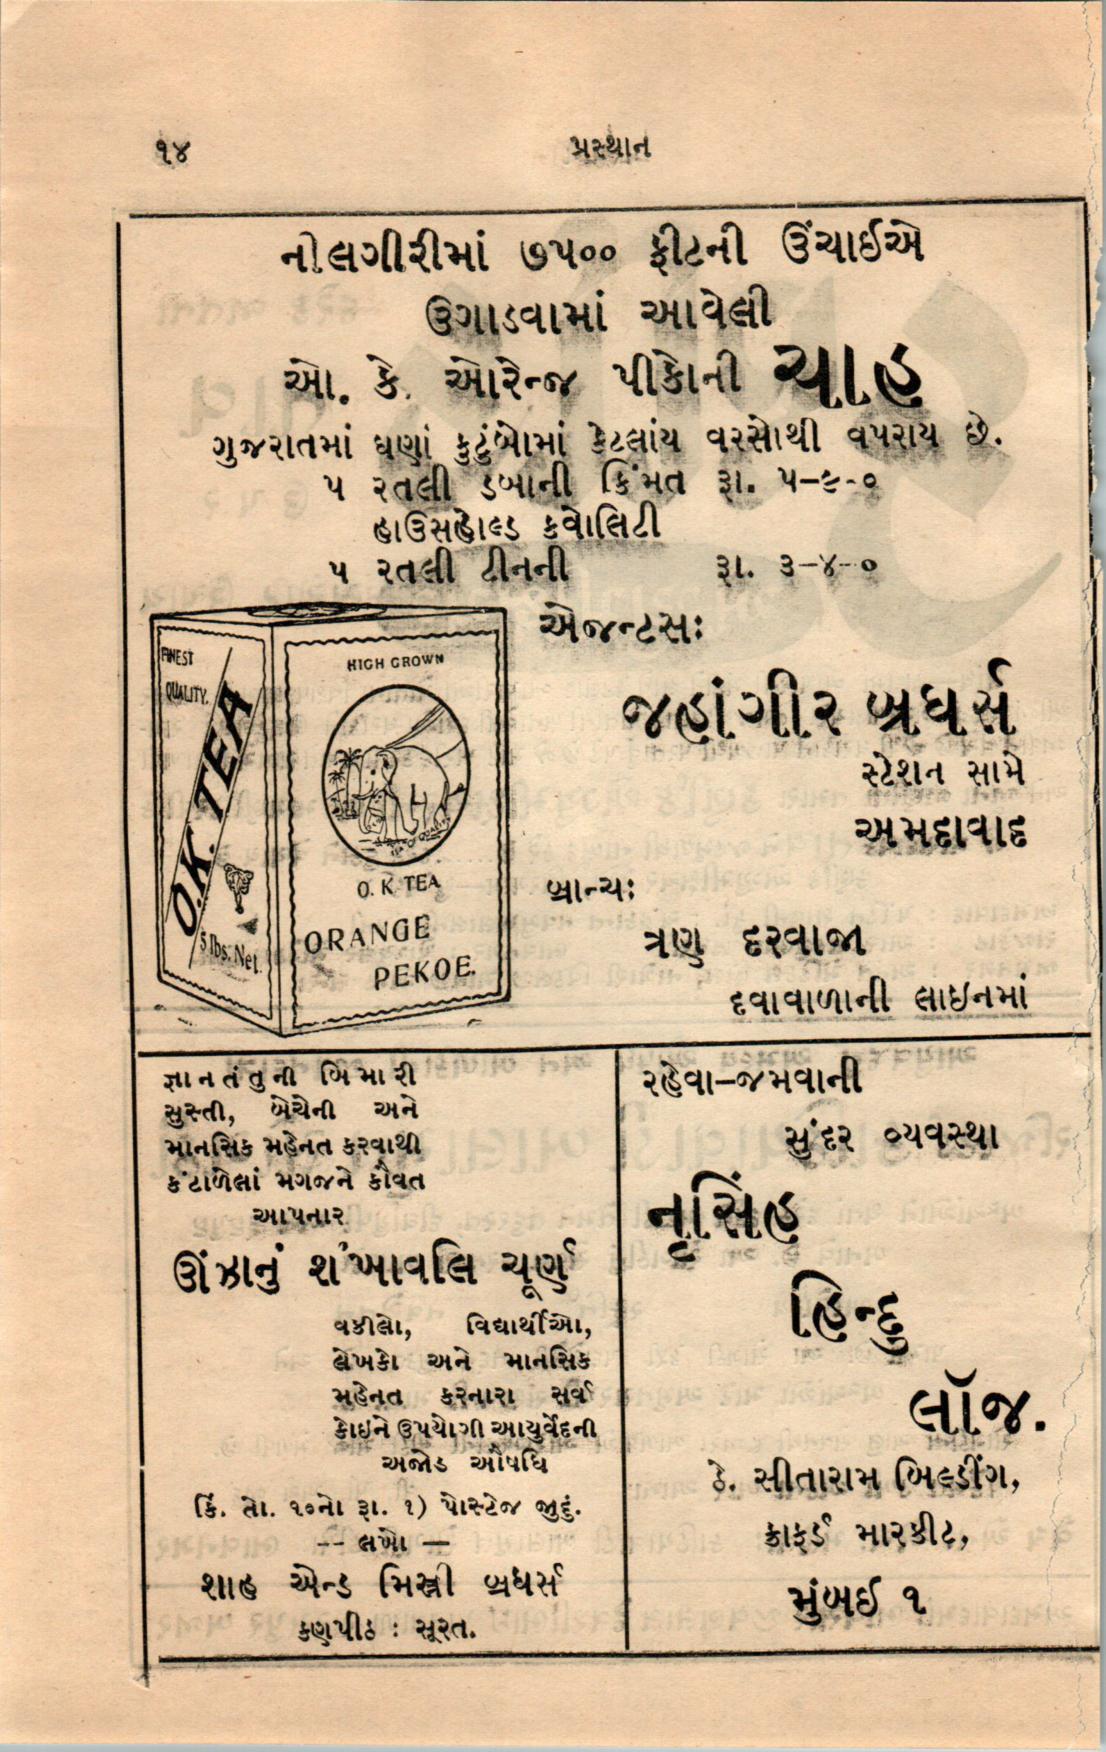 ૧૪
પ્રસ્થાન
નીલગીરીમાં ૭૫૦૦ ફીટની ઉંચાઈએ
ઉગાડવામાં આવેલી
ઓ. કે. ઓરેન્જ પીકોની ચાહ
ગુજરાતમાં ઘણાં કુટુંબોમાં કેટલાંય વરસોથી વપરાય છે.
૫ રતલી ડબાની કિંમત રૂા. ૫-૯-૦
હાઉસહોલ્ડ કવોલિટી
૫ રતલી ટીનની રૂા. ૩-૪-૦
FINEST
QUALITY.
O.K. TEA
5 lbs. Net.
HIGH GROWN
O. K. TEA
ORANGE
PEKOE.
એજન્ટસઃ
જહાંગીર બ્રધર્સ
સ્ટેશન સામે
અમદાવાદ
બ્રાન્ચઃ
ત્રણ દરવાજા
દવાવાળાની લાઇનમાં
જ્ઞાનતંતુની બિમારી
સુસ્તી, બેચેની અને
માનસિક મહેનત કરવાથી
કંટાળેલાં મગજને કૌવત
આપનાર
ઊંઝાનું શંખાવલિ ચૂર્ણ
વકીલો, વિદ્યાર્થીઓ,
લેખકો અને માનસિક
મહેનત કરનારા સર્વ
કોઇને ઉપયોગી આયુર્વેદની
અજોડ ઔષધિ
કિં. તો. ૧૦નો રૂા. ૧) પોસ્ટેજ જુદું.
-- લખો —
શાહ એન્ડ મિસ્ત્રી બ્રધર્સ
કણપીઠ : સૂરત.
રહેવા-જમવાની
સુંદર વ્યવસ્થા
નૃસિંહ
હિન્દુ
લૉજ.
ઠે. સીતારામ બિલ્ડીંગ,
ક્રાફર્ડ મારકીટ,
મુંબઈ ૧